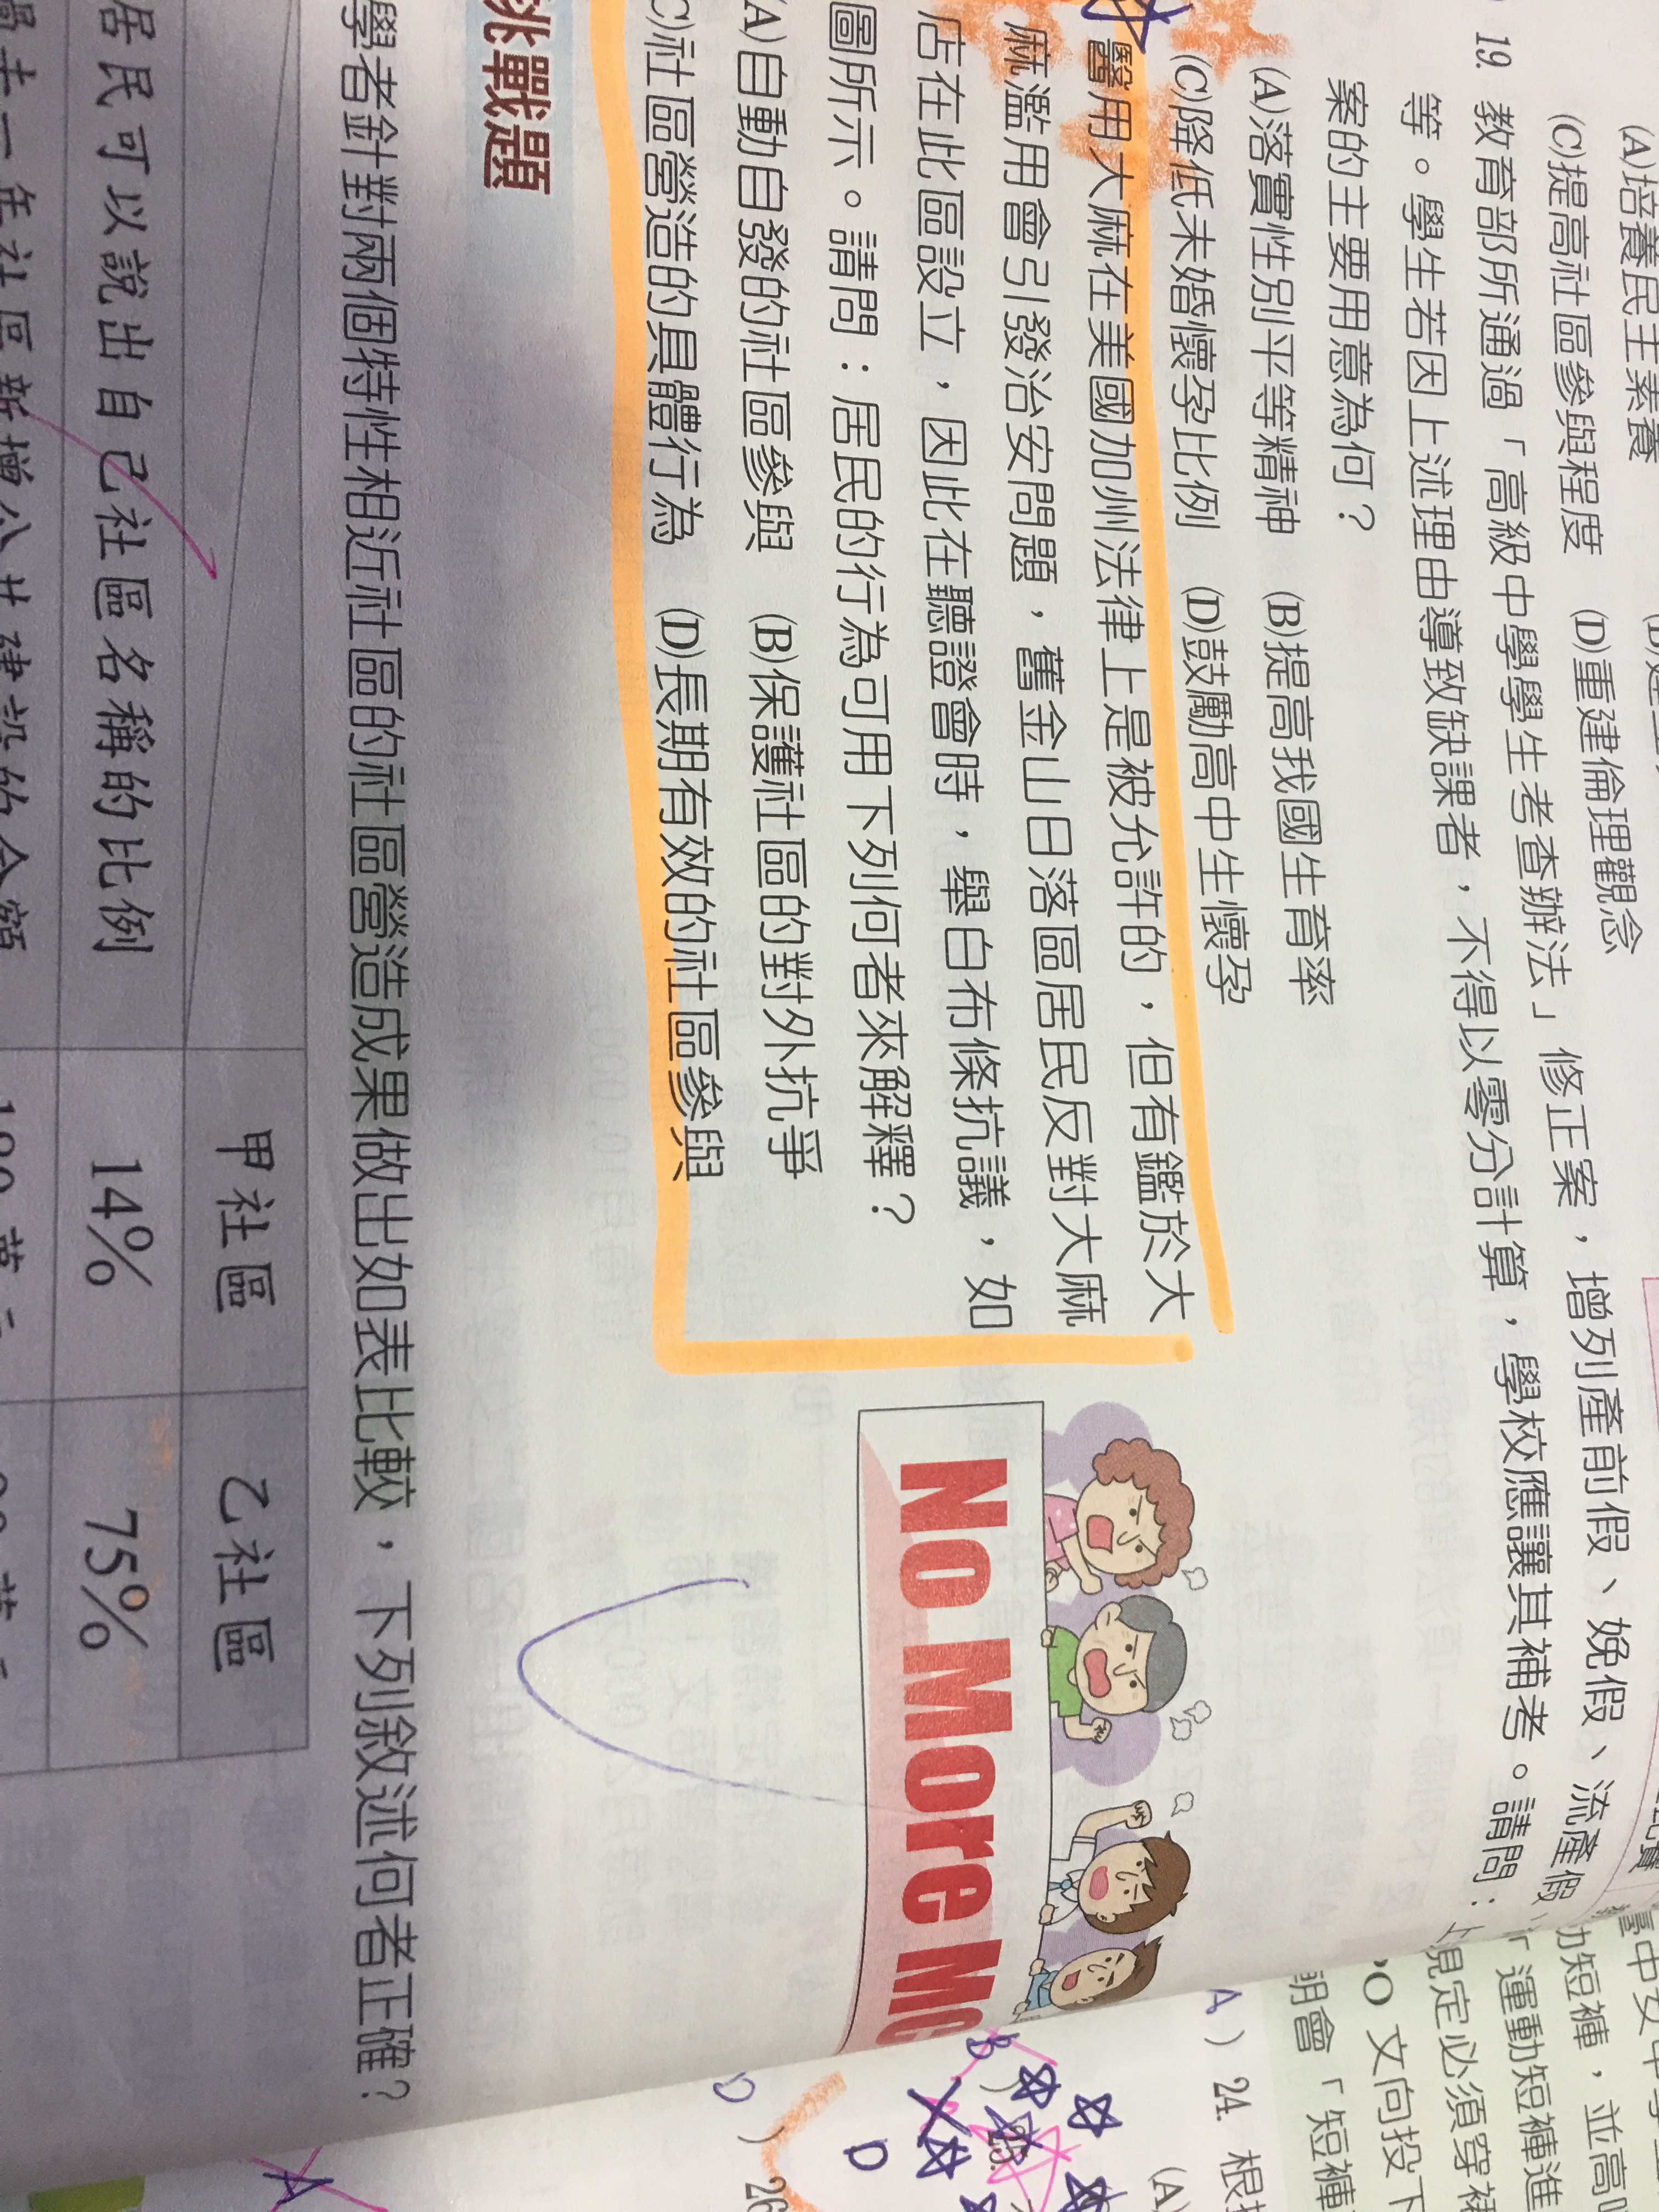 (A)培養民主素養
(C)提高社區參與程度 (D)重建倫理觀念
19. 教育部所通過「高級中學學生考查辦法」修正案，增列產前假、娩假、流產假
等。學生若因上述理由導致缺課者，不得以零分計算，學校應讓其補考。請問：
案的主要用意為何？
(A)落實性別平等精神 (B)提高我國生育率
(C)降低未婚懷孕比例 (D)鼓勵高中生懷孕
醫用大麻在美國加州法律上是被允許的，但有鑑於大
麻濫用會引發治安問題，舊金山日落區居民反對大麻
店在此區設立，因此在聽證會時，舉白布條抗議，如
圖所示。請問：居民的行為可用下列何者來解釋？
(A)自動自發的社區參與 (B)保護社區的對外抗爭
(C)社區營造的具體行為 (D)長期有效的社區參與
No More MC
挑戰題
學者針對兩個特性相近社區的社區營造成果做出如表比較，下列敘述何者正確？
甲社區 乙社區
居民可以說出自己社區名稱的比例 14% 75%
年社區新增公共建設的金額
臺中女中學生
動短褲，並高
「運動短褲進
規定必須穿裙
PO 文向投下
朋會「短褲
A ) 24. 根
(A)
B ) 25.
D
D ) 26
A